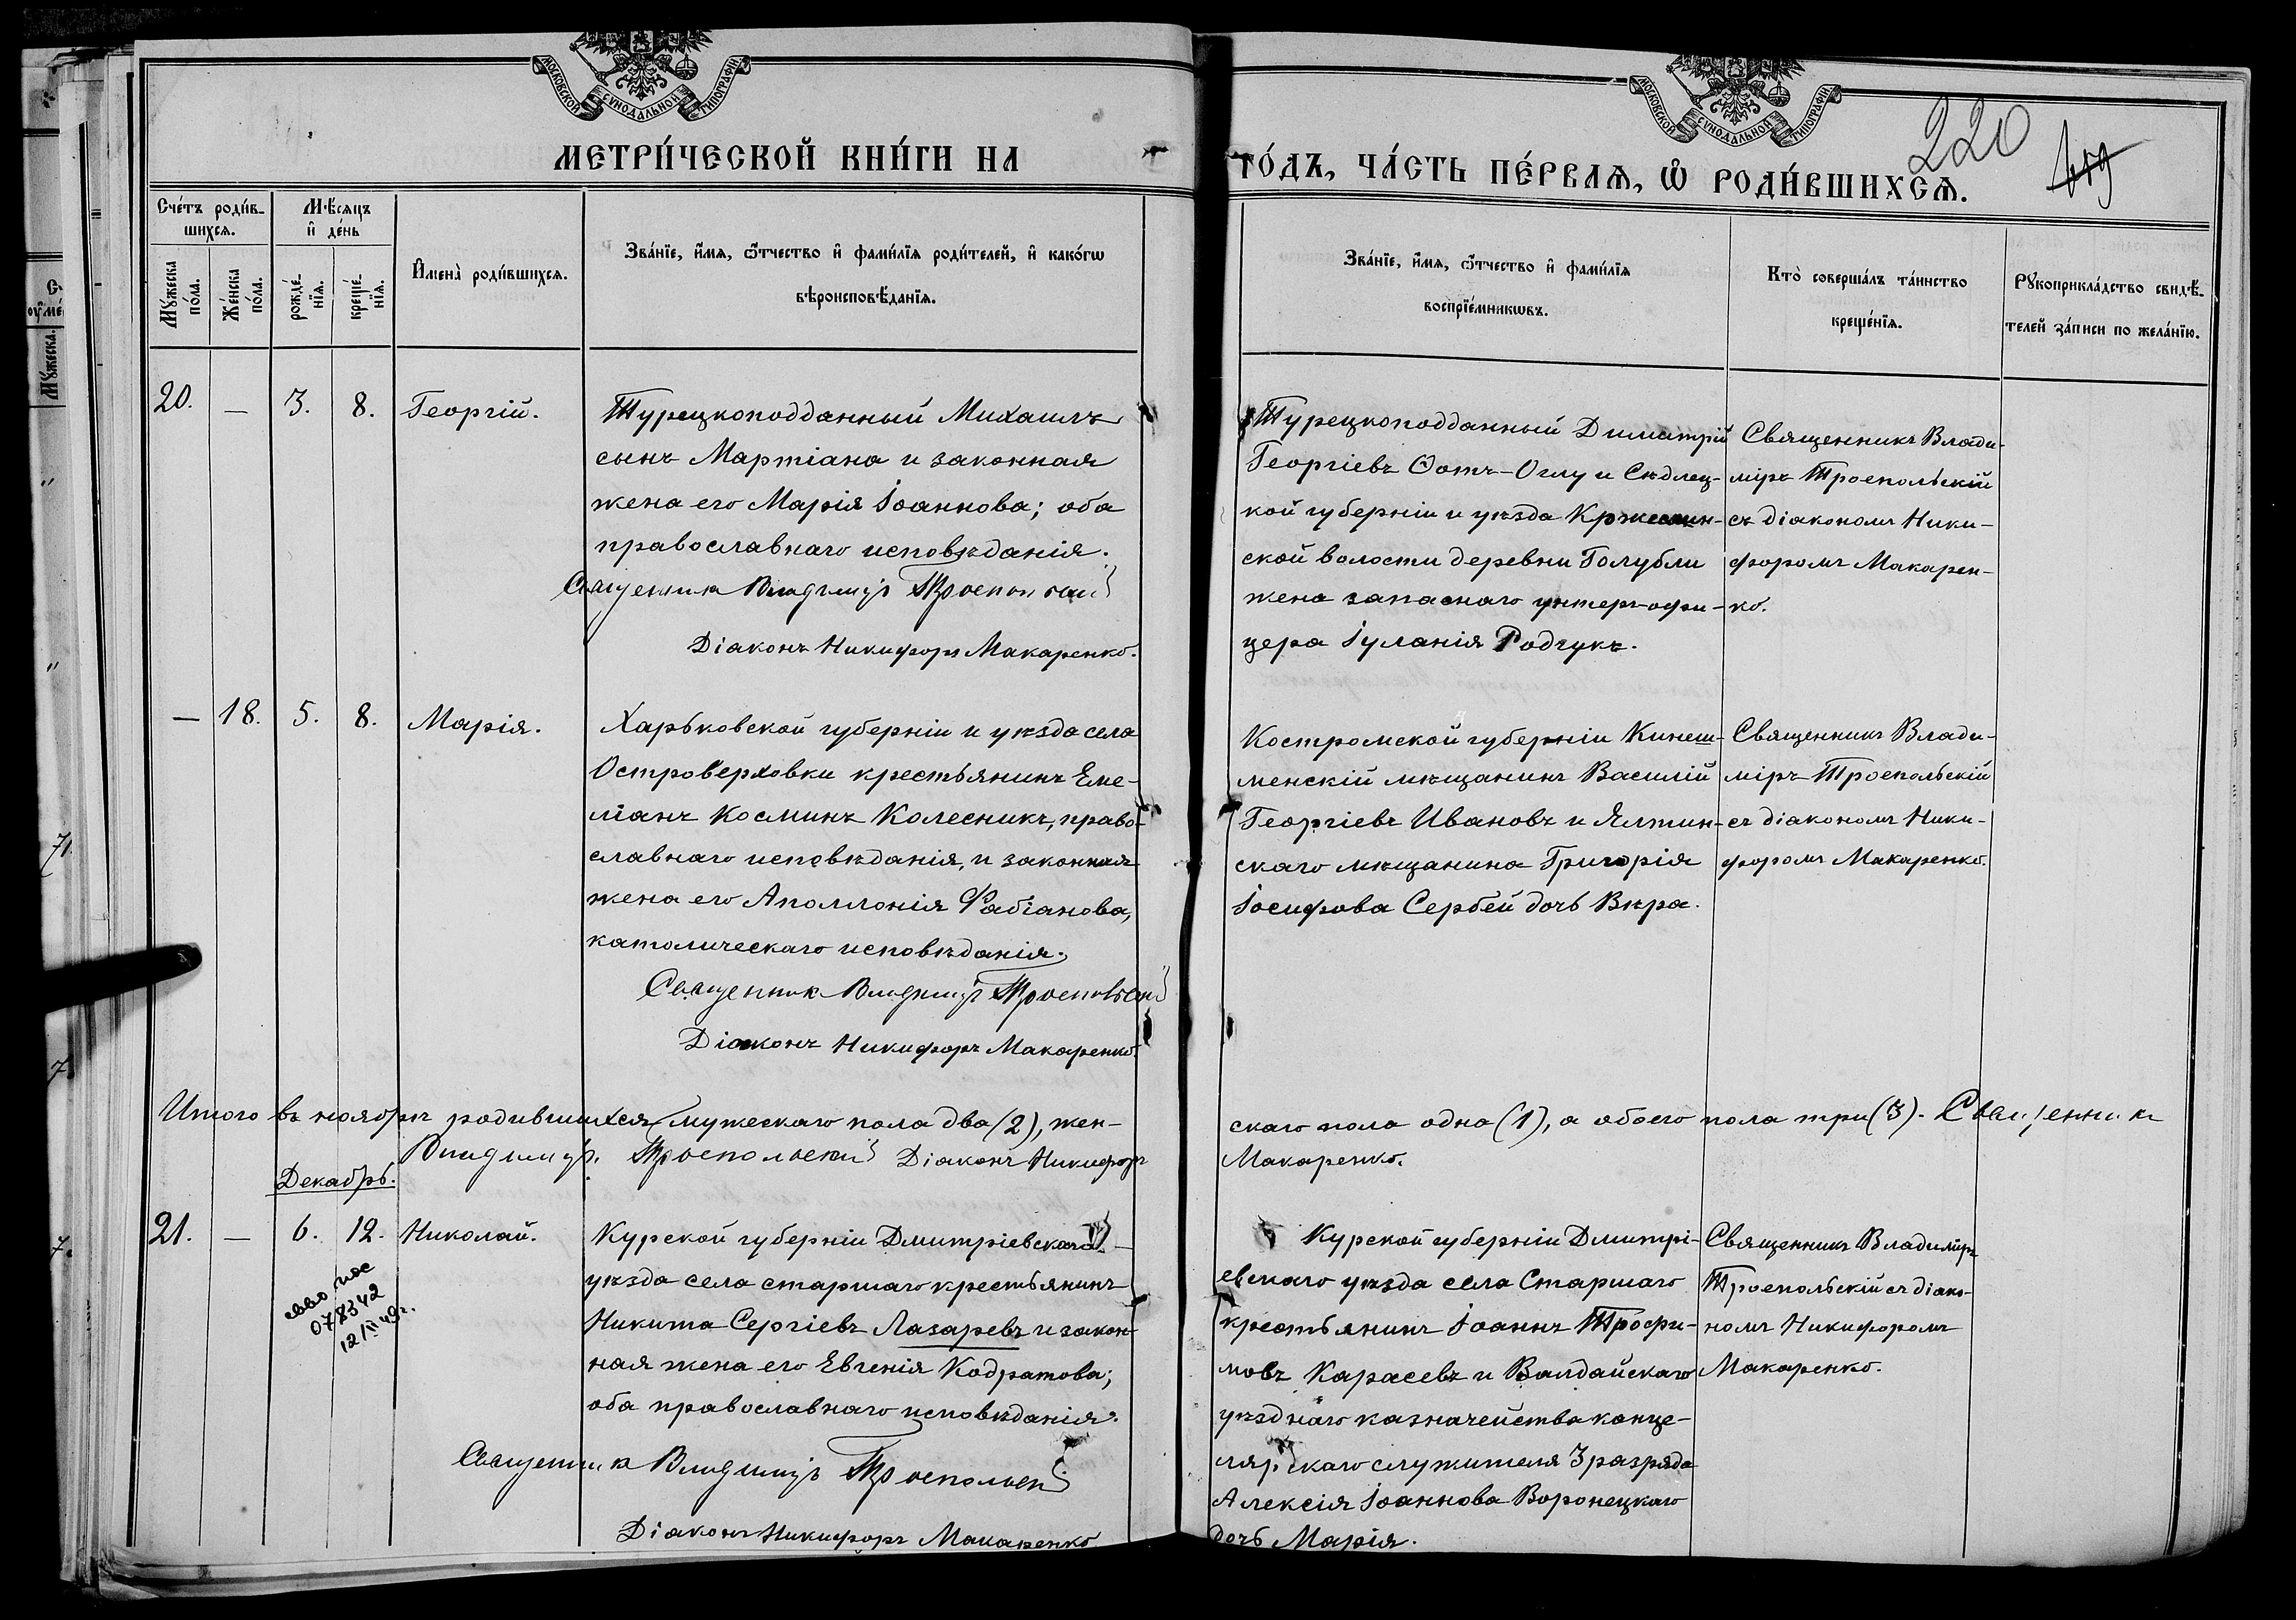 МОСКОВСКОЙ СѴНОДАЛЬНОЙ ТИПОГРАФІИ
МОСКОВСКОЙ СѴНОДАЛЬНОЙ ТИПОГРАФІИ
МЕТРИ́ЧЕСКОЙ КНИ́ГИ НА
ГО́ДЪ, ЧА́СТЬ ПЕ́РВАѦ, Ѡ РОДИ́ВШИХСѦ.
220
Сче́тъ роди́в-
шихсѧ.
Мѣ́сѧцъ
и҆ де́нь
Мꙋ́жеска
по́ла.
Же́нска
по́ла.
рожде́-
нїѧ.
креще́-
нїѧ.
И҆мена̀ роди́вшихсѧ.
Зва́нїе, и҆́мѧ, ѻ҆́тчество и҆ фами́лїѧ роди́телей, и҆ како́гѡ
вѣроисповѣ́данїѧ.
Зва́нїе, и҆́мѧ, ѻ҆́тчество и҆ фами́лїѧ
воспрїе́мникѡвъ.
Кто̀ соверша́лъ та́инство
креще́нїѧ.
Рꙋкоприкла́дство свидѣ́-
телей за́писи по жела́нїю.
20. — 3. 8. Георгій.
Турецкоподданный Михаилъ
сынъ Мартіана и законная
жена его Марія Іоаннова; оба
православнаго исповѣданія.
Священникъ Владиміръ Троепольскій
Діаконъ Никифоръ Макаренко.
Турецкоподданный Димитрій
Георгіевъ Ѳотъ-Оглу и Сѣдлец-
кой губерніи и уѣзда
ской волости деревни Голубли
жена запаснаго унтеръ-офи-
цера Іуланія Родчукъ.
Священникъ Влади-
міръ Троепольскій
съ діакономъ Ники-
форомъ Макарен-
ко.
— 18. 5. 8. Марія.
Харьковской губерніи и уѣзда села
Островерховки крестьянинъ Еми-
ліанъ Косминъ Колесникъ, право-
славнаго исповѣданія, и законная
жена его Аполлонія Фабіанова,
католическаго исповѣданія.
Священникъ Владиміръ Троепольскій
Діаконъ Никифоръ Макаренко.
Костромской губерніи Кинеш-
менскій мѣщанинъ Василій
Георгіевъ Ивановъ и Ялтин-
скаго мѣщанина Григорія
Іосифова Сербей дочь Вѣра.
Священникъ Влади-
міръ Троепольскій
съ діакономъ Ники-
форомъ Макаренко.
Итого въ ноябрѣ родившихся мужескаго пола два (2), жен-
скаго пола одна (1), а обоего пола три (3). Священникъ
Владиміръ Троепольскій Діаконъ Никифоръ
Макаренко.
Декабрь.
21. — 6. 12. Николай.
078342
12/II 49г.
Курской губерніи Дмитріевскаго
уѣзда села старшаго крестьянинъ
Никита Сергіевъ Лазаревъ и закон-
ная жена его Евгенія Кодратова;
оба православнаго исповѣданія.
Священникъ Владиміръ Троепольскій
Діаконъ Никифоръ Макаренко
Курской губерніи Дмитрі-
евскаго уѣзда села Старшаго
крестьянинъ Іоаннъ Трофи-
мовъ Карасевъ и Валдайскаго
уѣзднаго казначейства канце-
лярскаго служителя 3 разряда
Алексія Іоаннова Воронецкаго
дочь Марія.
Священникъ Владиміръ
Троепольскій съ діако-
номъ Никифоромъ
Макаренко.